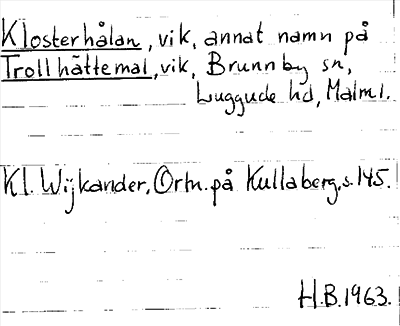 Klosterhålan, vik, annat namn på
Trollhättemal, vik, Brunnby sn,
Luggude hd, Malml.
Kl. Wijkander, Ortn. på Kullaberg, s. 145.
H.B. 1963.